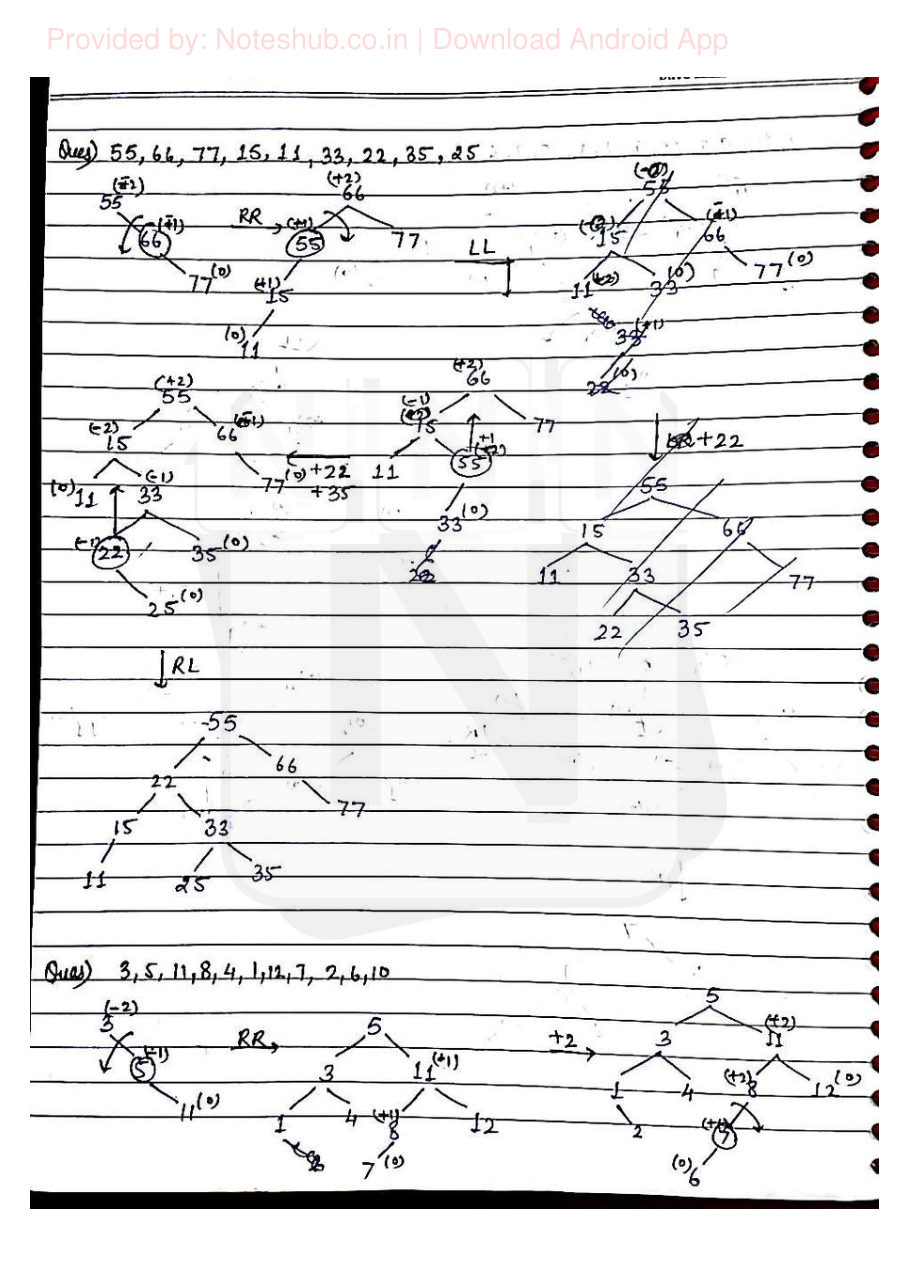 Provided by: Noteshub.co.in | Download Android App
Ques) 55, 66, 77, 15, 11, 33, 22, 35, 25
(-2)
55
(-1)
66
77 (0)
RR
(+2)
66
(+1)
55
77
(+1)
15
(0)
11
LL
55
15
(-1)
66
11
33
(0)
77 (0)
(+1)
22
(0)
(+2)
66
(-1)
15
77
11
+1
55
33 (0)
+22
+35
(+2)
55
(-2)
15
66
(0)
11
(-1)
33
77 (0)
(-1)
22
35 (0)
25 (0)
+22
55
15
66
11
33
77
22
35
RL
55
66
22
77
15
33
11
25
35
Ques) 3, 5, 11, 8, 4, 1, 12, 7, 2, 6, 10
(-2)
3
(-1)
5
11 (0)
RR
5
3
11 (+1)
1
4
(+1)
8
12
7 (0)
+2
5
3
(+2)
11
1
4
(+2)
8
12 (0)
2
(+1)
7
(0)
6